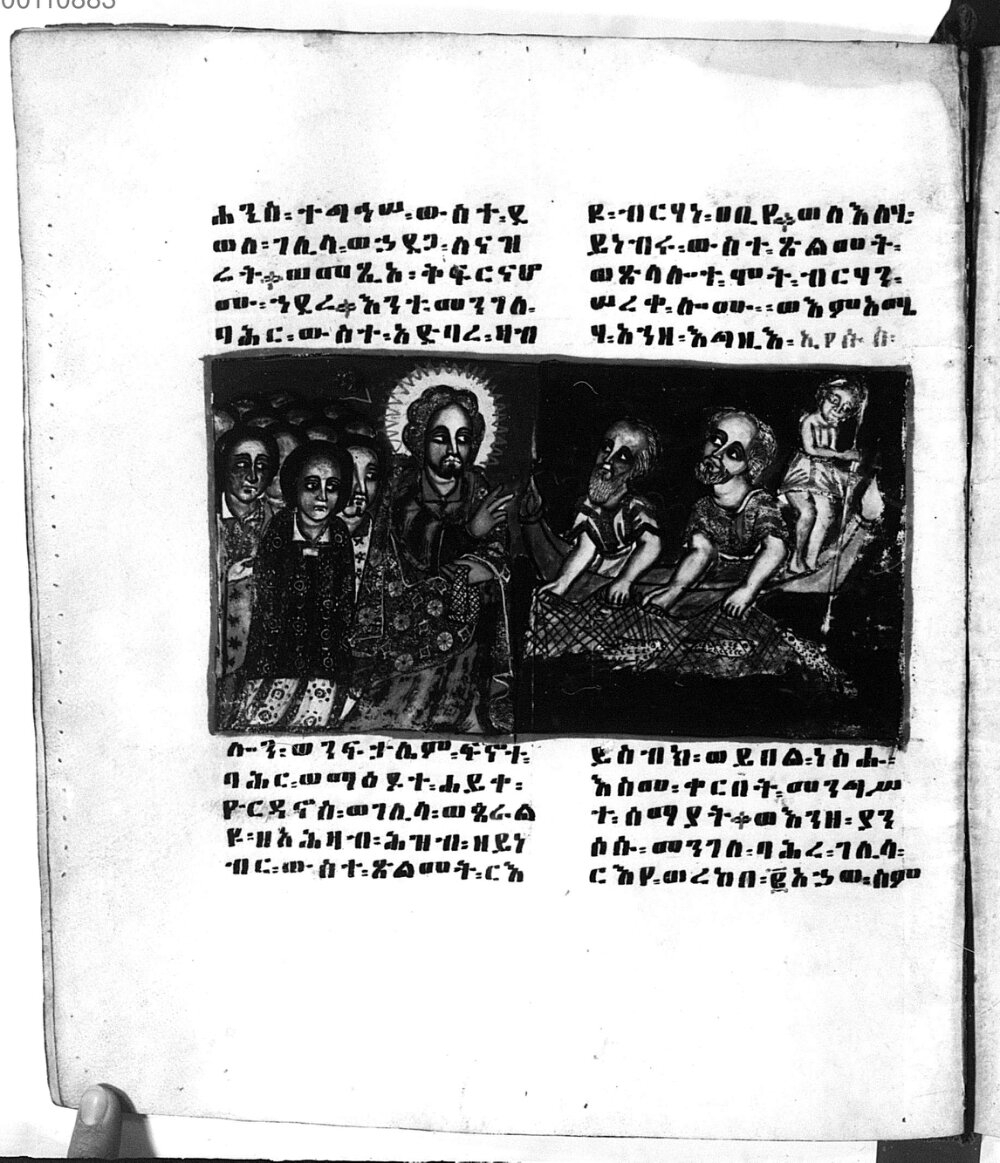 00110883
ሐንስ፡ተጣዓሠ፡ውስተ፡ይ
ወስ፡ገሊላ፡ወኃደጋ፡ለናዝ
ሬት። ወመጺአ፡ቅፍርናሆ
ሙ፡ኀደረ። እንተ፡መንገለ፡
ባሕር፡ውስተ፡አድባረ፡ዛብ
ሎን፡ወንፍታሌም፡ፍኖተ፡
ባሕር፡ወማዕዶተ፡ሐይቀ፡
ዮርዳኖስ፡ወገሊላ፡ወጰራል
ዩ፡ዘአሕዛብ፡ሕዝብ፡ዘይነ
ብር፡ውስተ፡ጽልመት፡ርእ
ዩ፡ብርሃነ፡ዐቢየ። ወለእለሂ፡
ይነብሩ፡ውስተ፡ጽልመት፡
ወጽላሎተ፡ሞት፡ብርሃን፡
ሠረቀ፡ሎሙ፡፡ወእምአሜ
ሃ፡አንዘ፡እግዚእ፡ኢየሱስ፡
ይስብክ፡ወይበል፡ነስሑ፡
እስመ፡ቀርበት፡መንግሥ
ተ፡ሰማያት። ወእንዘ፡ያን
ሶሱ፡መንገለ፡ባሕረ፡ገሊላ፡
ርእየ፡ወረከበ፡፪አኃወ፡ስም